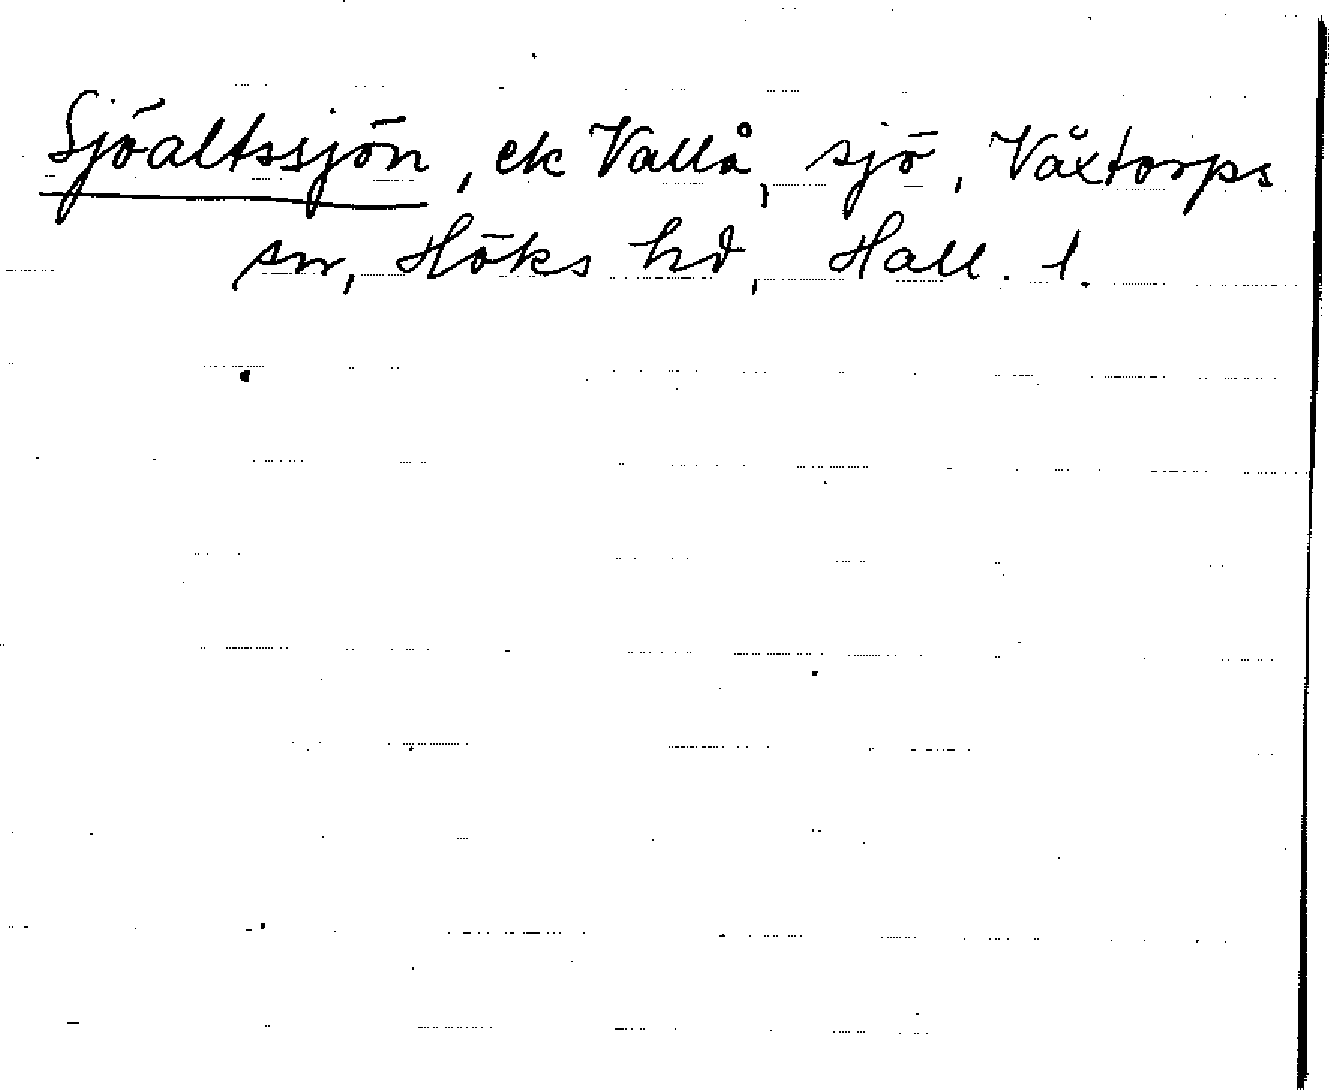 Sjöaltssjön, ek Vallå, sjö, Växtorps
sn, Höks hd, Hall. l.